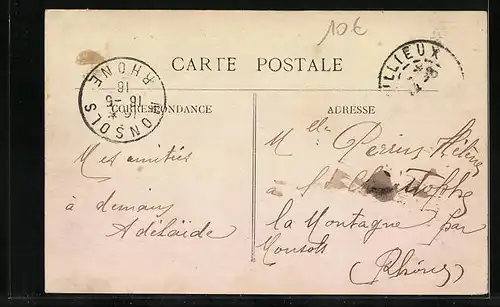 10€
CARTE POSTALE
ILLIEUX
MONSOLS
RHONE
16-6
16
CORRESPONDANCE
ADRESSE
Mes amitiés
à demain
Adélaïde
Mlle Perrin Hélène
à St Christophe
la Montagne par
Monsols
(Rhône)